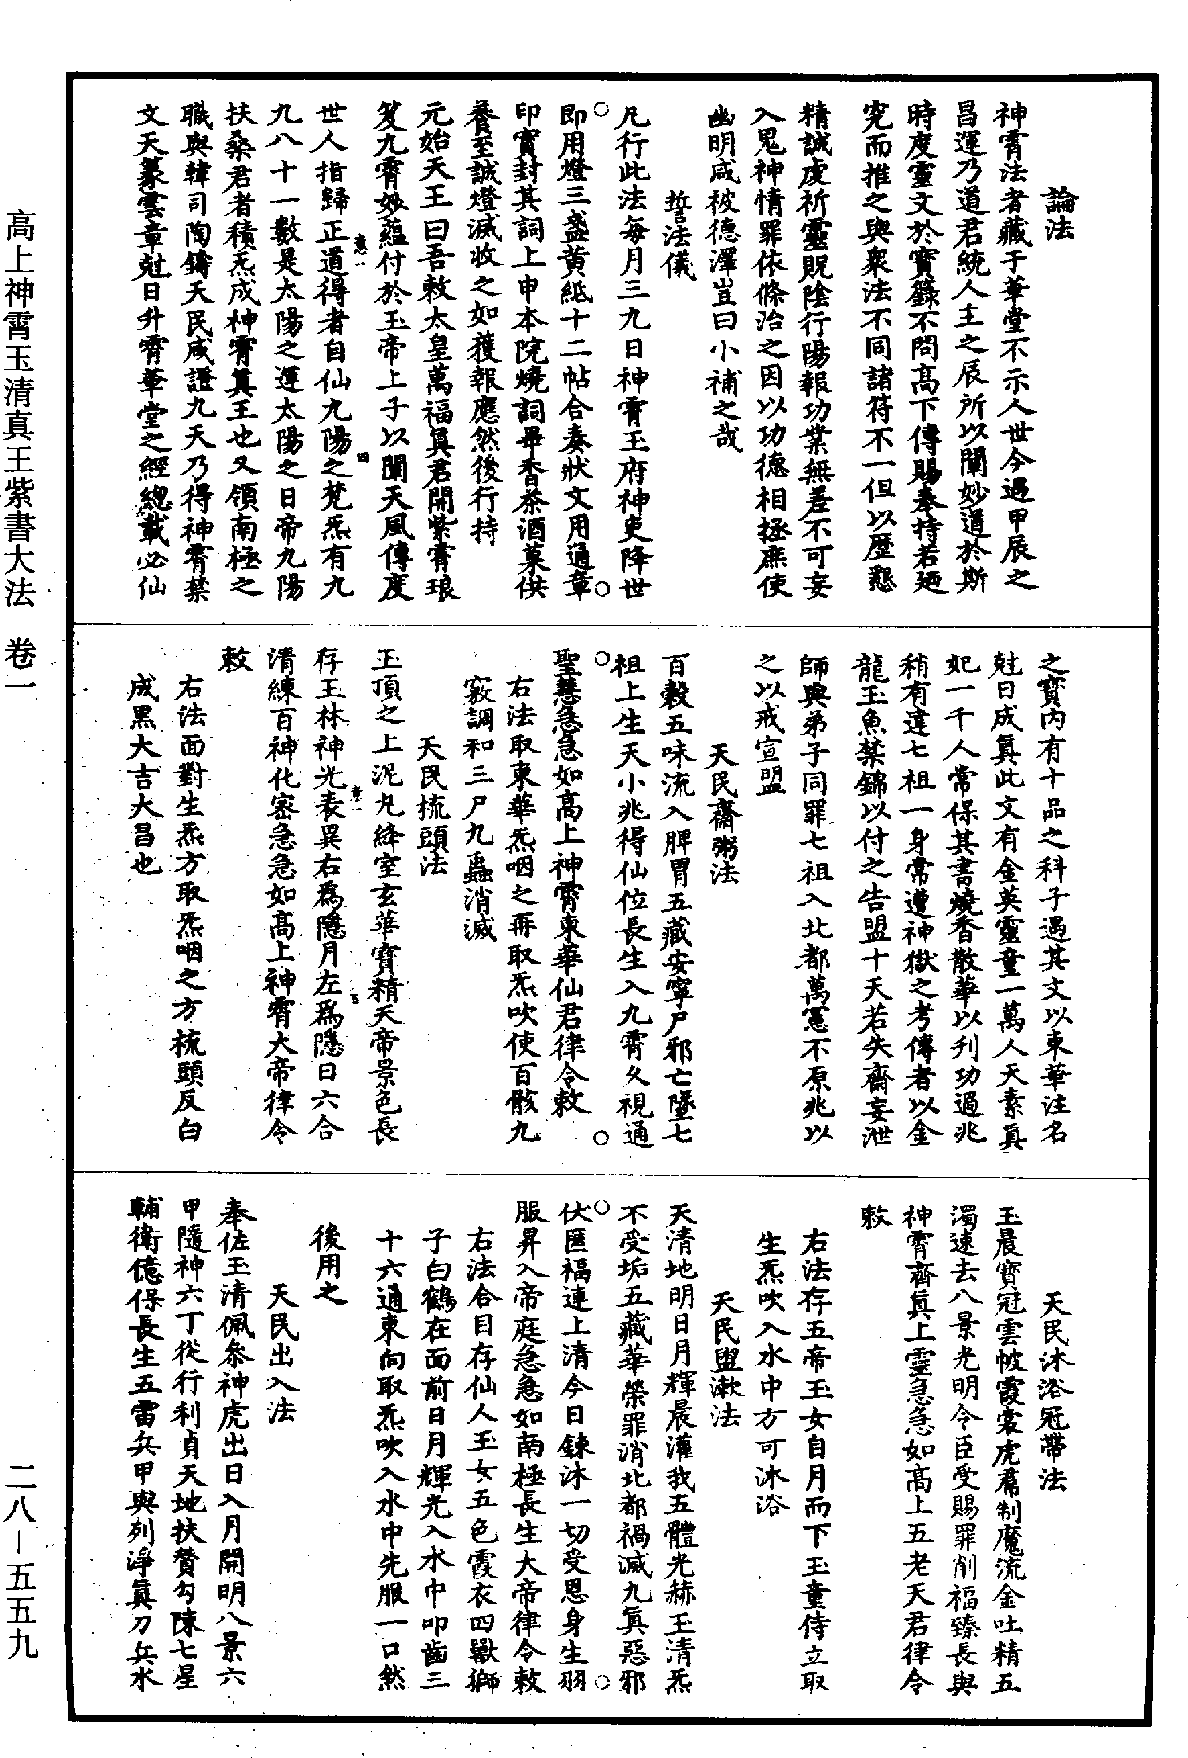 論法
神霄法者藏于華堂不示人世今遇甲辰之
昌運乃道君統人主之辰所以闡妙道於斯
時度靈文於寶籙不問高下傳賜奉持若廼
究而推之與衆法不同諸符不一但以歷懇
精誠虔祈靈貺陰行陽報功業無差不可妄
入鬼神情罪依條治之因以功德相拯庶使
幽明咸被德澤豈曰小補之哉
誓法儀
凡行此法每月三九日神霄玉府神吏降世
即用燈三盞黄紙十二帖合奏狀文用通章
印寶封其詞上申本院燒詞畢香茶酒菓供
養至誠燈滅收之如獲報應然後行持
元始天王曰吾敕太皇萬福眞君開紫霄琅
笈九霄妙蘊付於玉帝上子以闡天風傳度
世人指歸正道得者自仙九陽之梵炁有九
九八十一數是太陽之運太陽之日帝九陽
扶桑君者積炁成神霄眞王也又領南極之
職與韓司陶鑄天民咸證九天乃得神霄禁
文天篆雲章尅日升霄華堂之經總載必仙
之寶内有十品之科子遇其文以東華注名
尅日成眞此文有金英靈童一萬人天素眞
妃一千人常保其書燒香散華以刋功過兆
稍有違七祖一身常遭神獄之考傳者以金
龍玉魚禁錦以付之告盟十天若失齋妄泄
師與弟子同罪七祖入北都萬冤不原兆以
之以戒宣盟
天民齋粥法
百穀五味流入脾胃五藏安寧尸邪亡墜七
祖上生天小兆得仙位長生入九霄久視通
聖慧急急如高上神霄東華仙君律令敕
右法取東華炁咽之再取炁吹使百骸九
竅調和三尸九蟲消滅
天民梳頭法
玉頂之上泥丸絳室玄華寶精天帝景色長
存玉林神光表異右爲隱月左爲隱日六合
清練百神化密急急如高上神霄大帝律令
敕
右法面對生炁方取炁咽之方梳頭反白
成黑大吉大昌也
天民沐浴冠帶法
玉晨寶冠雲帔霞裳虎羣制魔流金吐精五
濁速去八景光明令臣受賜罪削福臻長與
神霄齊眞上靈急急如高上五老天君律令
敕
右法存五帝玉女自月而下玉童侍立取
生炁吹入水中方可沐浴
天民盥漱法
天清地明日月輝晨灌我五體光赫玉清炁
不受垢五藏華榮罪消北都禍滅九眞惡邪
伏匿福連上清今日鍊沐一切受恩身生羽
服昇入帝庭急急如南極長生大帝律令敕
右法合目存仙人玉女五色霞衣四獸獅
子白鶴在面前日月輝光入水中叩齒三
十六通東向取炁吹入水中先服一口然
後用之
天民出入法
奉佐玉清佩參神虎出日入月開明八景六
甲隨神六丁從行利貞天地扶贊勾陳七星
輔衛億保長生五雷兵甲與列淨眞刀兵水
高上神霄玉清真王紫書大法　卷一
二八—五五九